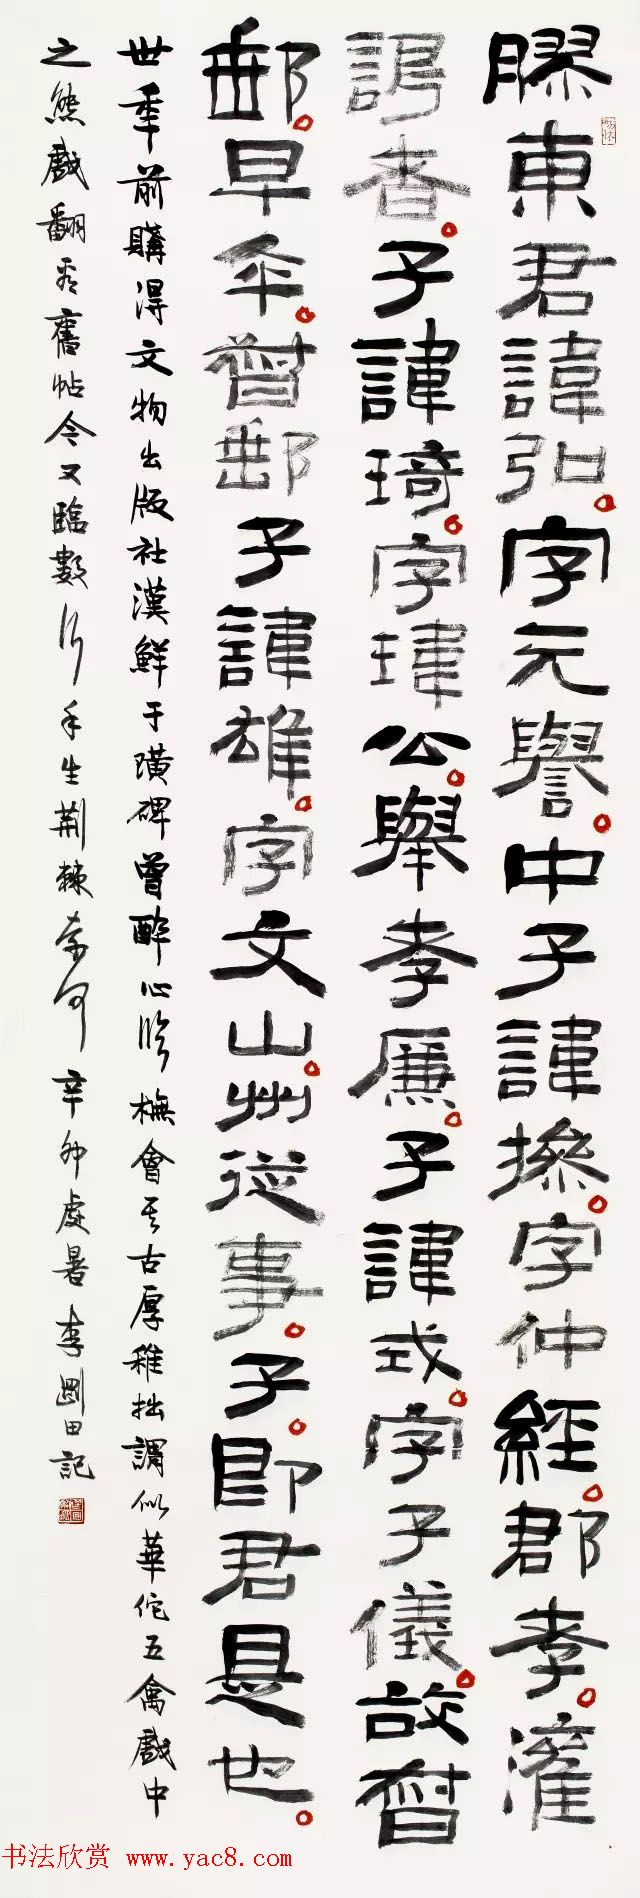 膠東君諱弘字元譽中子諱操字仲經郡孝灌
謁者子諱琦字瑋公舉孝廉子諱式字子儀故督
郵早卒督郵子諱雄字文山州從事子即君是也
世年前購得文物出版社漢鮮于璜碑曾醉心臨橅會其古厚稚拙謂似華佗五禽戲中
之熊戲翻看舊帖今又臨數行手生荊棘奈何辛卯處暑李剛田記
书法欣赏 www.yac8.com